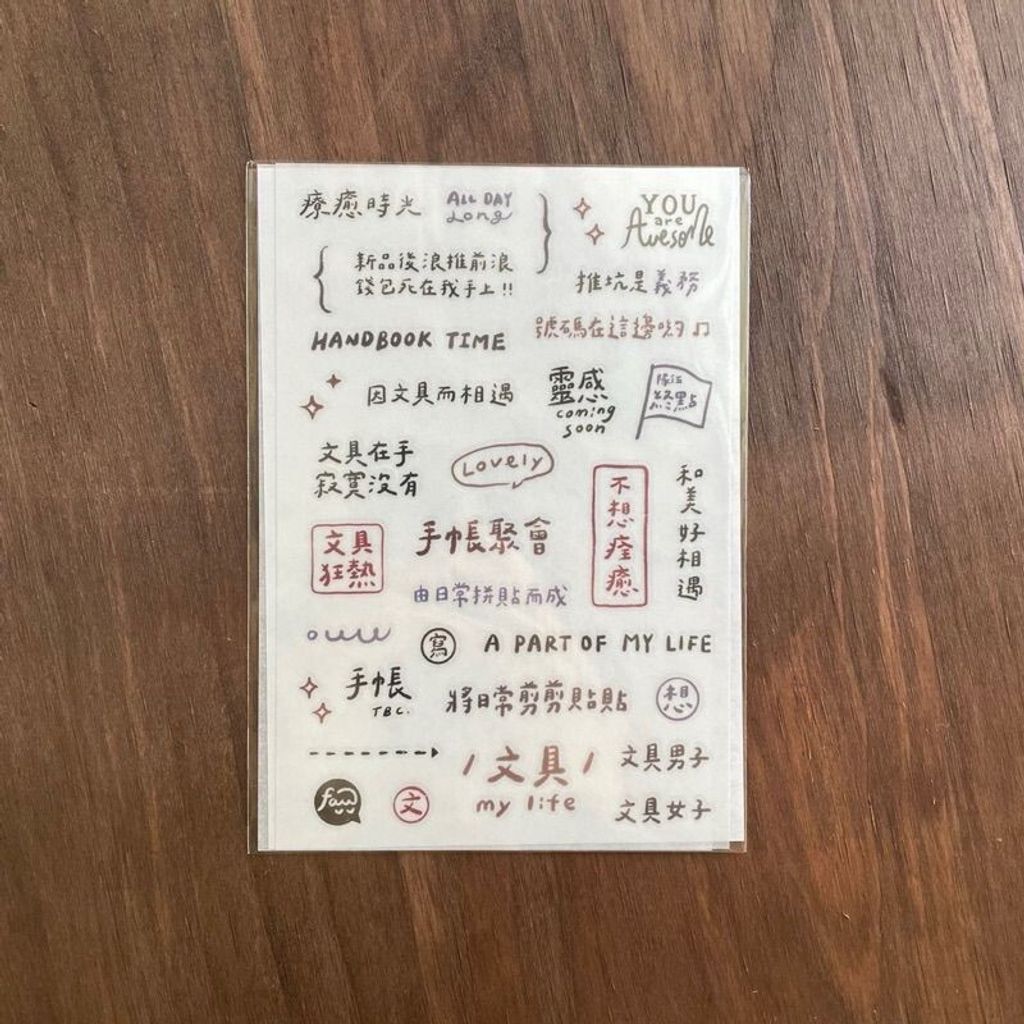 療癒時光
ALL DAY
Long
YOU
are
Awesome
新品後浪推前浪
錢包死在我手上!!
推坑是義務
HANDBOOK TIME
號碼在這邊喲♫
因文具而相遇
靈感
coming
soon
隊伍
終點
文具在手
寂寞沒有
Lovely
不想痊癒
和美好相遇
文具
狂熱
手帳聚會
由日常拼貼而成
寫
A PART OF MY LIFE
手帳
TBC.
將日常剪剪貼貼
想
文具
my life
文具男子
文
文具女子